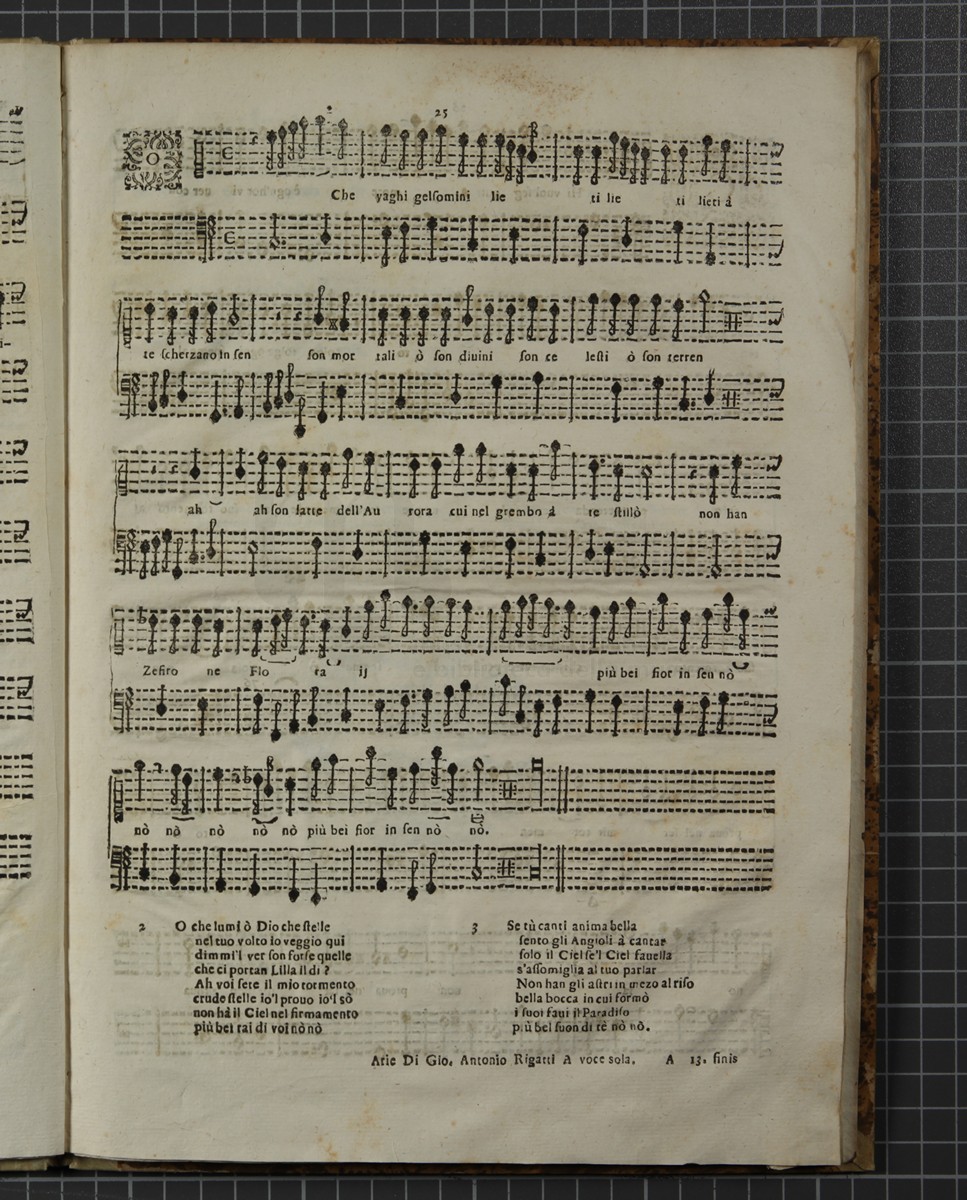 25
O
Che vaghi gelsomini lie ti lie ti lieti à
te scherzano in sen son mor tali ò son diuini son ce lesti ò son terren
ah ah son latte dell'Au rora cui nel grembo à te stillò non han
Zefiro ne Flo ra ij più bei fior in sen nò
nò nò nò nò nò più bei fior in sen nò nò.
2 O che lumi ò Dio che stelle
nel tuo volto io veggio qui
dimmi'l ver son forse quelle
che ci portan Lilla il dì ?
Ah voi sete il mio tormento
crude stelle io'l prouo io'l sò
non hà il Ciel nel firmamento
più bei rai di voi nò nò
3 Se tù canti anima bella
sento gli Angioli à cantar
solo il Ciel se'l Ciel fauella
s'assomiglia al tuo parlar
Non han gli astri in mezo al riso
bella bocca in cui formò
i suoi faui il Paradiso
più bel suon di te nò nò.
Arie Di Gio. Antonio Rigatti A voce sola. A 13. finis